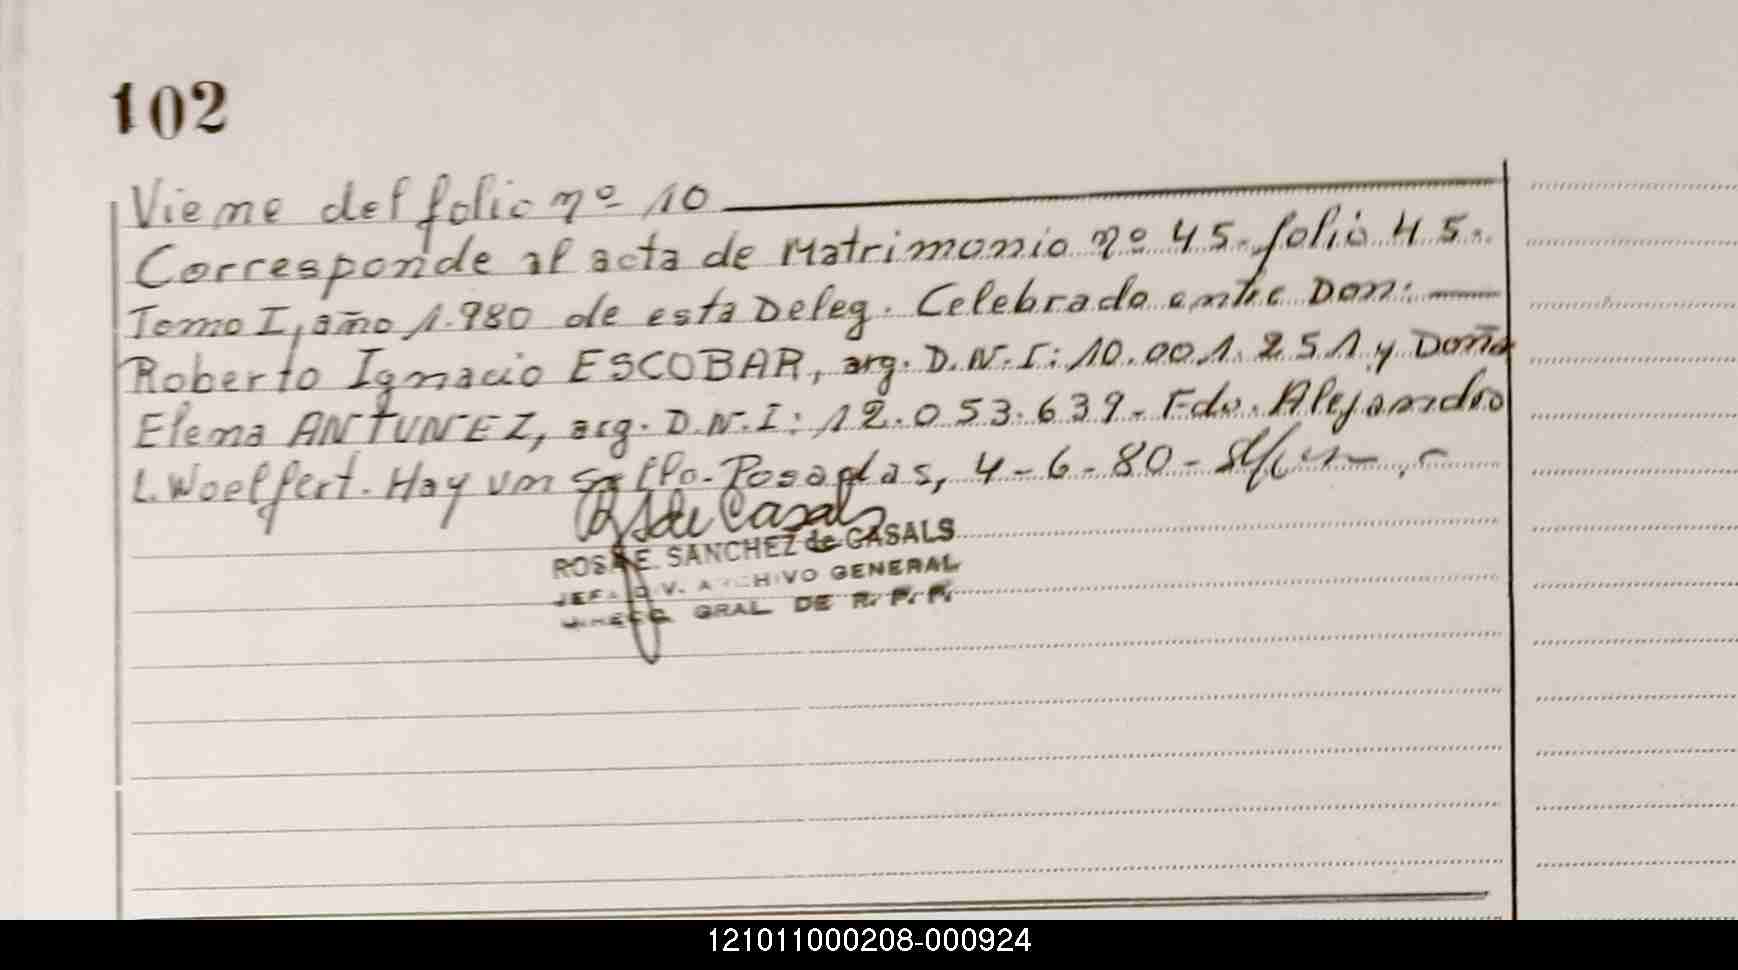 102
Viene del folio nº 10
Corresponde al acta de Matrimonio nº 45. folio 45.
Tomo I, año 1.980 de esta Deleg. Celebrado entre Don:
Roberto Ignacio ESCOBAR, arg. D.N.I: 10.001.251 y Doña
Elena ANTUNEZ, arg. D.N.I: 12.053.639. Fdo. Alejandro
L. Woelfert. Hay un Sello. Posadas, 4-6-80-
de Casals
ROSA E. SANCHEZ de CASALS
JEFA DIV. ARCHIVO GENERAL
GRAL DE R. P. P.
121011000208-000924